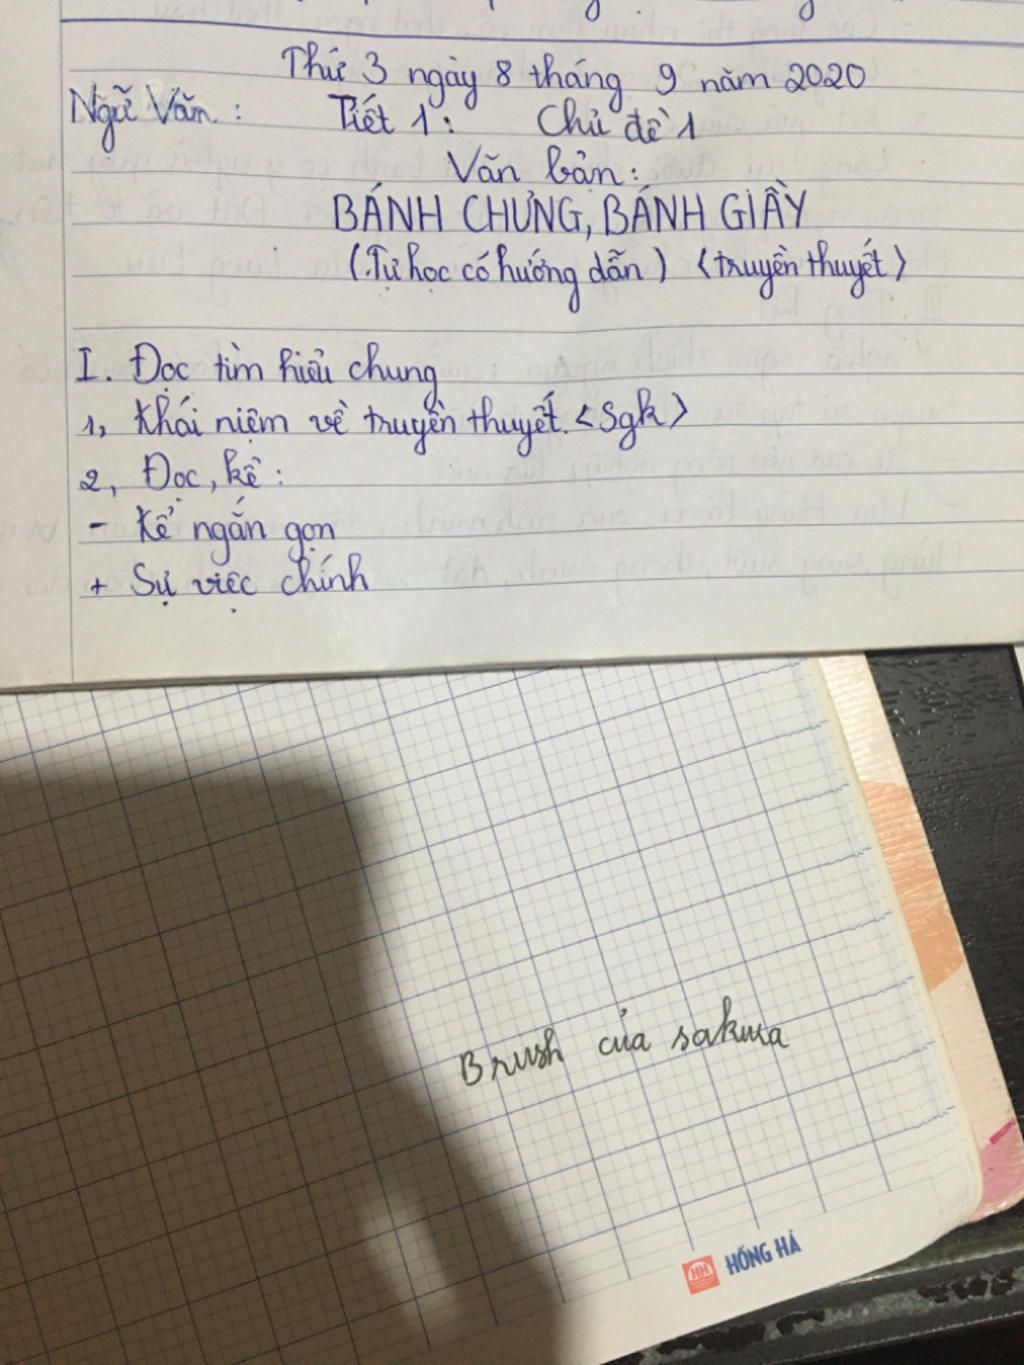 Thứ 3 ngày 8 tháng 9 năm 2020
Ngữ Văn: Tiết 1: Chủ đề 1
Văn bản:
BÁNH CHƯNG, BÁNH GIẦY
(Tự học có hướng dẫn) <truyền thuyết>
I. Đọc tìm hiểu chung
1, Khái niệm về truyền thuyết. <Sgk>
2, Đọc, kể:
- Kể ngắn gọn
+ Sự việc chính
Brush của sakura
HH HỒNG HÀ